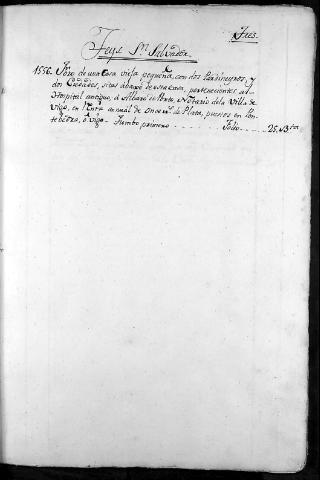 Tres.
Teys Sn. Salvador.
1556. Foro de una Casa vieja pequeña, con dos Pardineyros, y
dos sitas abaxo de esta Casa, pertenecientes al
Hospital antiguo, á Albaro de Notario de la Villa de
Vigo, en Renta annual de once de Plata, puestos en Pon-
tebedra, ó Vigo. Numbo. primero Folio 25, 43